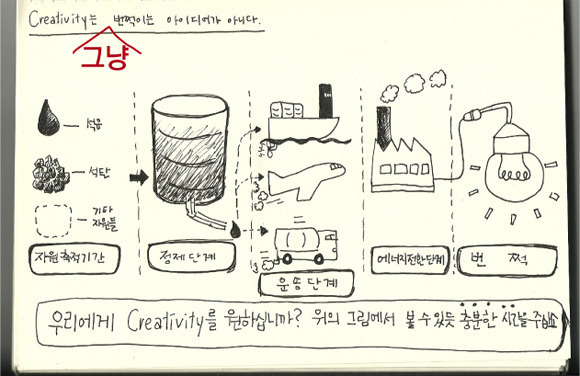 Creativity는 번쩍이는 아이디어가 아니다.
그냥
석유
석탄
기타
자원들
자원축적기간
정제단계
운송단계
에너지전환단계
번 쩍
우리에게 Creativity를 원하십니까? 위의 그림에서 볼 수 있듯 충분한 시간을 주십쇼